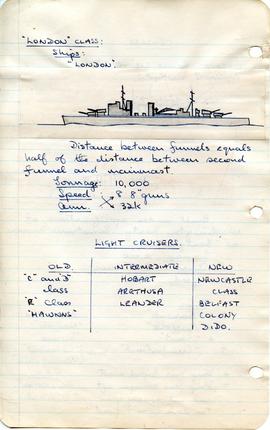 "LONDON" CLASS:
Ships:
"LONDON".
Distance between funnels equals
half of the distance between second
funnel and mainmast.
Tonnage: 10,000
Speed 8 8" guns
Arm. 32k
LIGHT CRUISERS.
OLD. INTERMEDIATE NEW
"C" and "D" HOBART NEWCASTLE
class ARETHUSA CLASS
"E" Class LEANDER BELFAST
"HAWKINS" COLONY
DIDO.